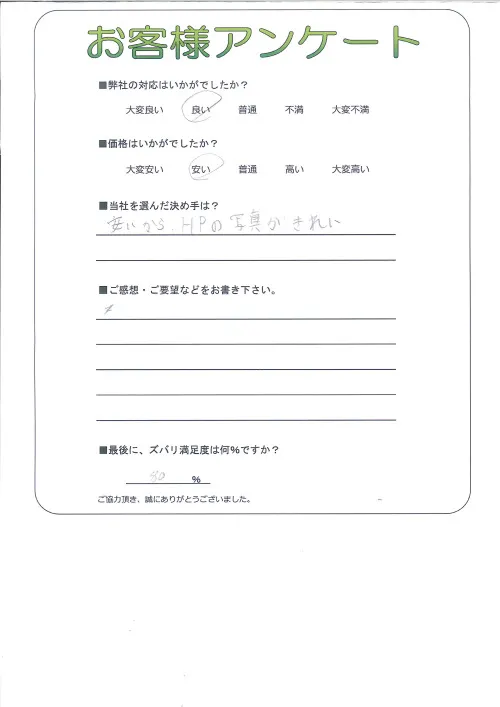 お客様アンケート
■弊社の対応はいかがでしたか？
大変良い 良い 普通 不満 大変不満
■価格はいかがでしたか？
大変安い 安い 普通 高い 大変高い
■当社を選んだ決め手は？
安いから、HPの写真がきれい
■ご感想・ご要望などをお書き下さい。
■最後に、ズバリ満足度は何%ですか？
80 %
ご協力頂き、誠にありがとうございました。